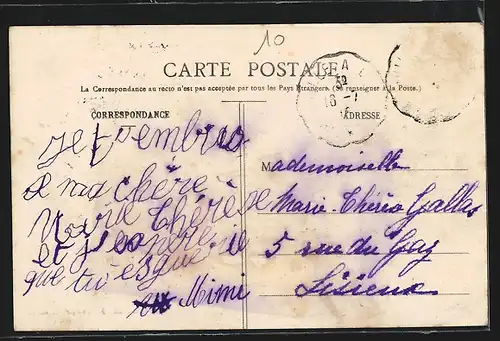 10
CARTE POSTALE
La Correspondance au recto n'est pas acceptée par tous les Pays Étrangers. (Se renseigner à la Poste.)
CORRESPONDANCE
ADRESSE
je t'embras
a ma chère
Marie Thérèse
et j'espère
que tu es guérie
Mimi
Mademoiselle
Marie-Thérèse Gallas
5 rue du Gaz
Lisieux